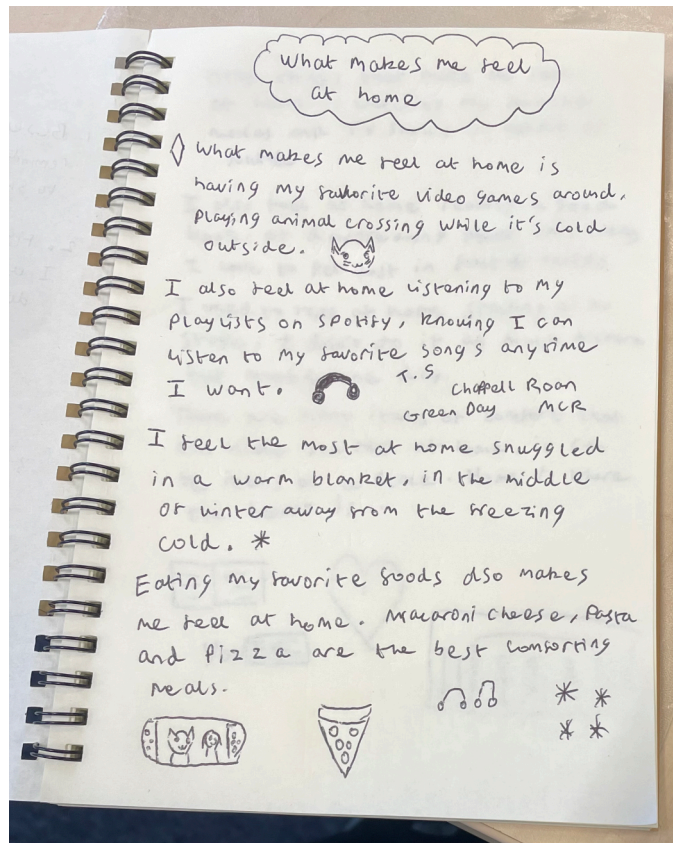 What makes me feel
at home
What makes me feel at home is
having my favorite video games around,
playing animal crossing while it's cold
outside.
I also feel at home listening to my
playlists on spotify, knowing I can
listen to my favorite songs anytime
I want.
T.S
Chappell Roan
Green Day MCR
I feel the most at home snuggled
in a warm blanket, in the middle
of winter away from the freezing
cold. *
Eating my favorite foods also makes
me feel at home. Macaroni cheese, Pasta
and Pizza are the best comforting
meals.